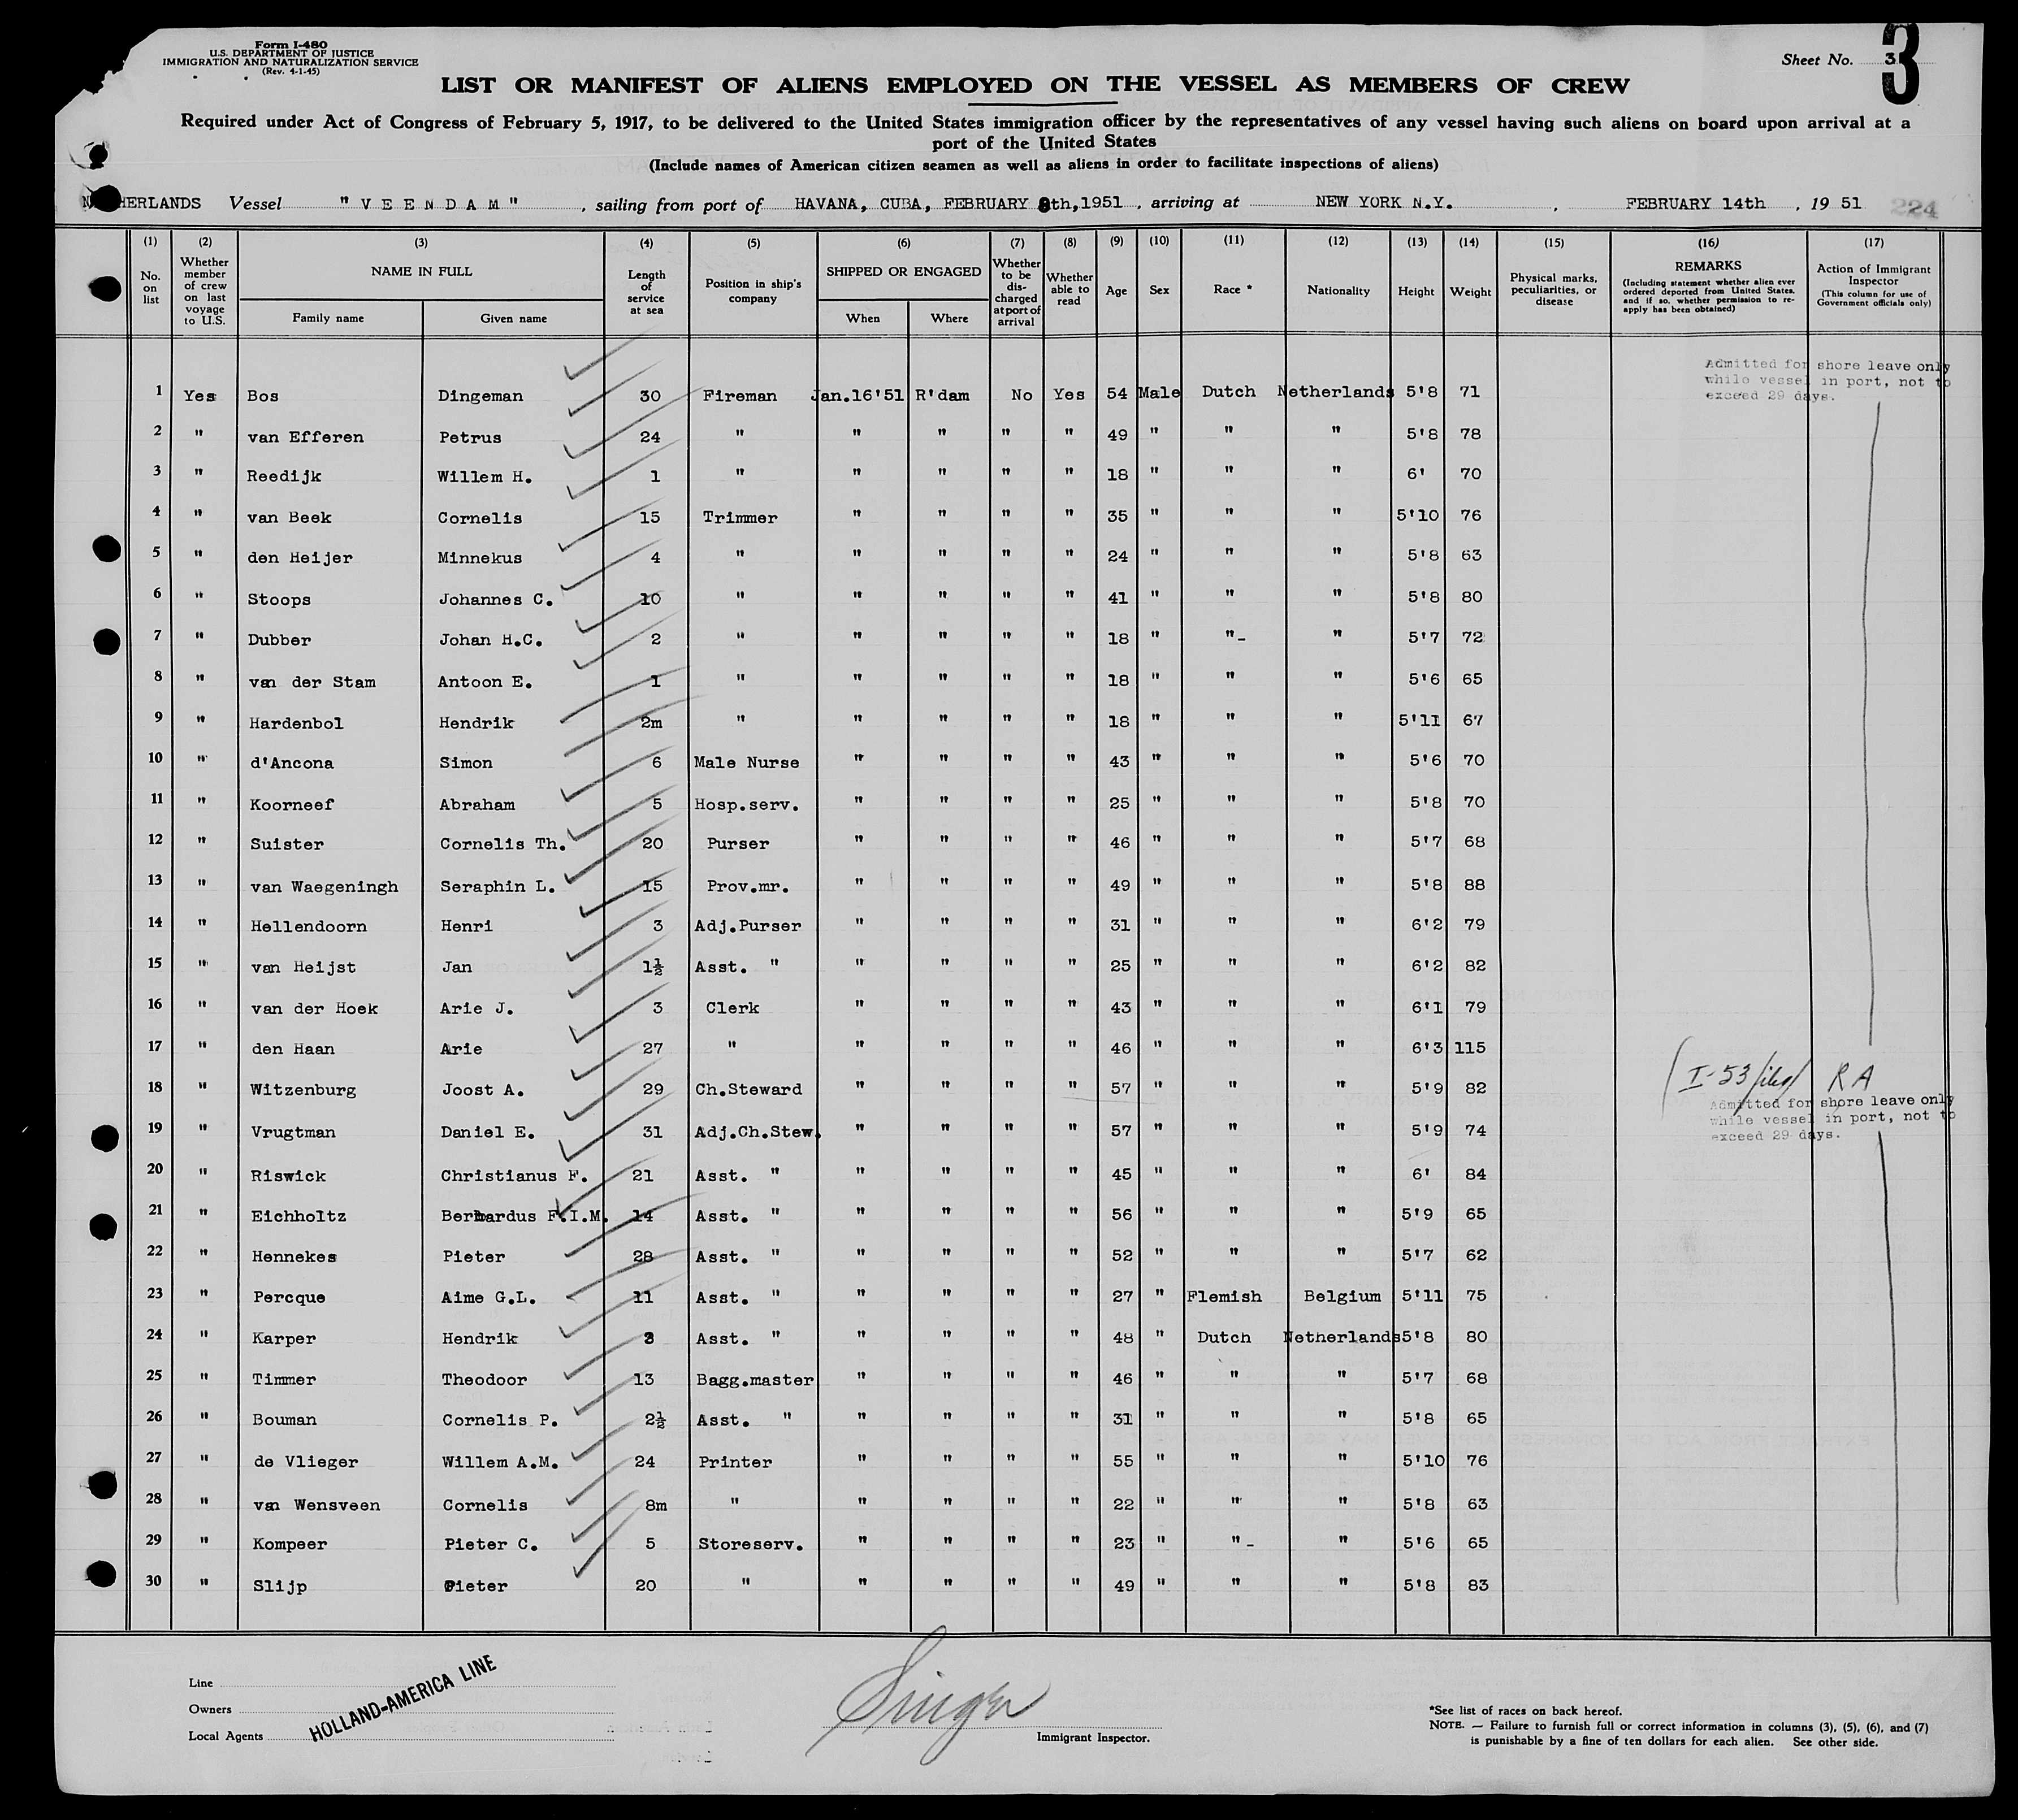 Form I-480
U.S. DEPARTMENT OF JUSTICE
IMMIGRATION AND NATURALIZATION SERVICE
(Rev. 4-1-45)
Sheet No. 3
3
LIST OR MANIFEST OF ALIENS EMPLOYED ON THE VESSEL AS MEMBERS OF CREW
Required under Act of Congress of February 5, 1917, to be delivered to the United States immigration officer by the representatives of any vessel having such aliens on board upon arrival at a
port of the United States
(Include names of American citizen seamen as well as aliens in order to facilitate inspections of aliens)
HERLANDS Vessel "VEENDAM", sailing from port of HAVANA, CUBA, FEBRUARY 8th, 1951, arriving at NEW YORK N.Y., FEBRUARY 14th, 19 51 224
(1) (2) (3) (4) (5) (6) (7) (8) (9) (10) (11) (12) (13) (14) (15) (16) (17)
No. on list
Whether member of crew on last voyage to U.S.
NAME IN FULL
Family name Given name
Length of service at sea
Position in ship's company
SHIPPED OR ENGAGED
When Where
Whether to be discharged at port of arrival
Whether able to read
Age Sex Race * Nationality Height Weight
Physical marks, peculiarities, or disease
REMARKS
(Including statement whether alien ever ordered deported from United States, and if so, whether permission to reapply has been obtained)
Action of Immigrant Inspector
(This column for use of Government officials only)
Admitted for shore leave only
while vessel in port, not to
exceed 29 days.
1 Yes Bos Dingeman 30 Fireman Jan.16'51 R'dam No Yes 54 Male Dutch Netherlands 5'8 71
2 " van Efferen Petrus 24 " " " " " 49 " " " 5'8 78
3 " Reedijk Willem H. 1 " " " " " 18 " " " 6' 70
4 " van Beek Cornelis 15 Trimmer " " " " 35 " " " 5'10 76
5 " den Heijer Minnekus 4 " " " " " 24 " " " 5'8 63
6 " Stoops Johannes C. 10 " " " " " 41 " " " 5'8 80
7 " Dubber Johan H.C. 2 " " " " " 18 " "- " 5'7 72
8 " van der Stam Antoon E. 1 " " " " " 18 " " " 5'6 65
9 " Hardenbol Hendrik 2m " " " " " 18 " " " 5'11 67
10 " d'Ancona Simon 6 Male Nurse " " " " 43 " " " 5'6 70
11 " Koorneef Abraham 5 Hosp.serv. " " " " 25 " " " 5'8 70
12 " Suister Cornelis Th. 20 Purser " " " " 46 " " " 5'7 68
13 " van Waegeningh Seraphin L. 15 Prov.mr. " " " " 49 " " " 5'8 88
14 " Hellendoorn Henri 3 Adj.Purser " " " " 31 " " " 6'2 79
15 " van Heijst Jan 1½ Asst. " " " " " 25 " " " 6'2 82
16 " van der Hoek Arie J. 3 Clerk " " " " 43 " " " 6'1 79
17 " den Haan Arie 27 " " " " " 46 " " " 6'3 115
18 " Witzenburg Joost A. 29 Ch.Steward " " " " 57 " " " 5'9 82 I-53 filed RA
Admitted for shore leave only
while vessel in port, not to
exceed 29 days.
19 " Vrugtman Daniel E. 31 Adj.Ch.Stew. " " " " 57 " " " 5'9 74
20 " Riswick Christianus F. 21 Asst. " " " " " 45 " " " 6' 84
21 " Eichholtz Bernardus F.I.M. 14 Asst. " " " " " 56 " " " 5'9 65
22 " Hennekes Pieter 28 Asst. " " " " " 52 " " " 5'7 62
23 " Percque Aime G.L. 11 Asst. " " " " " 27 " Flemish Belgium 5'11 75
24 " Karper Hendrik 3 Asst. " " " " " 48 " Dutch Netherlands 5'8 80
25 " Timmer Theodoor 13 Bagg.master " " " " 46 " " " 5'7 68
26 " Bouman Cornelis P. 2½ Asst. " " " " " 31 " " " 5'8 65
27 " de Vlieger Willem A.M. 24 Printer " " " " 55 " " " 5'10 76
28 " van Wensveen Cornelis 8m " " " " " 22 " " " 5'8 63
29 " Kompeer Pieter C. 5 Storeserv. " " " " 23 " "- " 5'6 65
30 " Slijp Pieter 20 " " " " " 49 " " " 5'8 83
Line
Owners
Local Agents
HOLLAND-AMERICA LINE
Singer
Immigrant Inspector.
*See list of races on back hereof.
NOTE. — Failure to furnish full or correct information in columns (3), (5), (6), and (7)
is punishable by a fine of ten dollars for each alien. See other side.